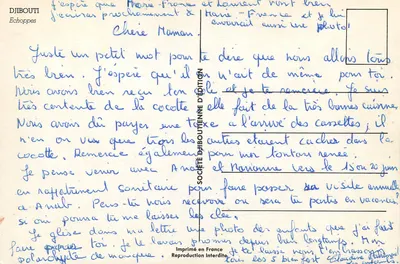 j'espère que Marie-France et Laurent vont bien
j'écrirai prochainement à Marie-France et je lui
enverrai aussi une photo!
DJIBOUTI
Echoppes
Chère Maman
Juste un petit mot pour te dire que nous allons tous
très bien. J'espère qu'il en n'ait de même pour toi.
Nous avons bien reçu ton et je te remercie. Je suis
très contente de la cocotte elle fait de la très bonne cuisine
Nous avons dû payer une taxe à l'arrivé des cassettes, il
n'en on vu que trois les autres étaient cachées dans la
cocotte. Remercie également pour moi tonton renée.
Je pense venir avec Anaël et Marianne vers le 15 ou 20 juin
en rapatriement sanitaire pour faire passer sa visite annuelle
à Anaël. Peux-tu nous recevoir ou sera tu partie en vacances
si oui pourra tu me laisses les clés.
Je glisse dans ma lettre une photo des enfants que j'ai fais
faire je te l'avais promis depuis bien longtemps. Mon
de manque. Je te laisse
tous les 5 bien fort
SOCIÉTÉ DJIBOUTIENNE D'ÉDITION
Imprimé en France
Reproduction Interdite